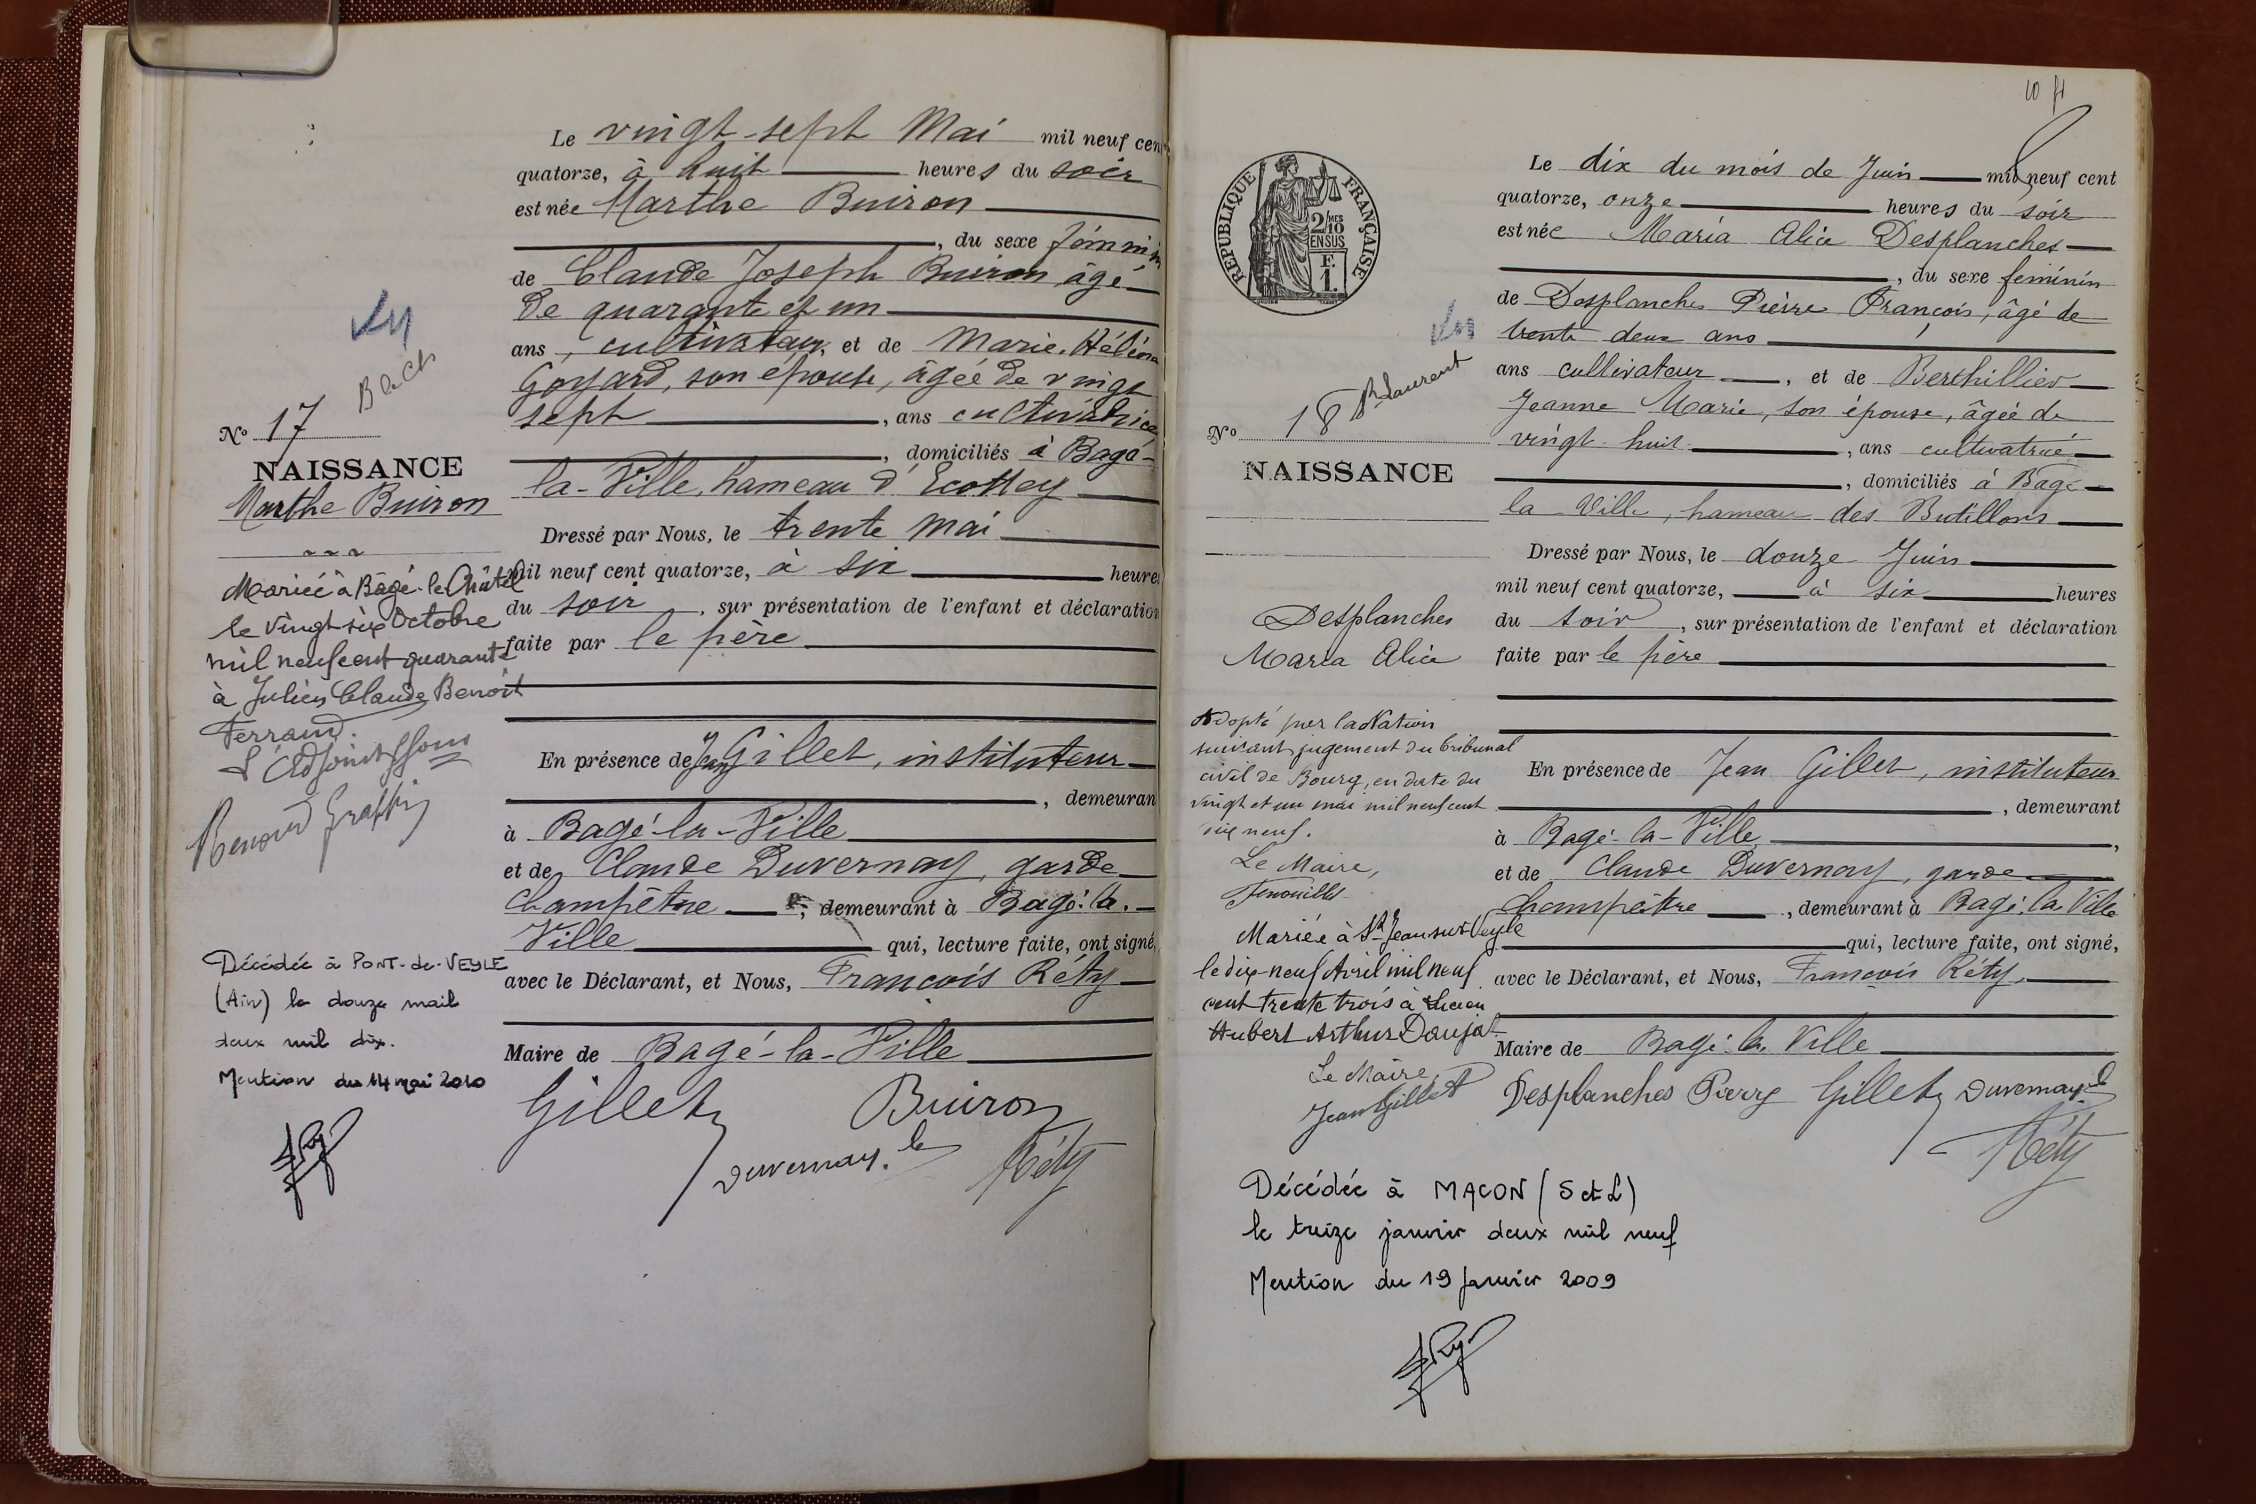 Le vingt-sept Mai mil neuf cen
quatorze, à huit heures du soir
est née Marthe Buiron
, du sexe féminin
de Claude Joseph Buiron, âgé
de quarante et un
ans, cultivateur, et de Marie Hélène
Goyard, son épouse, âgée de vingt
sept, ans cultivatrice
, domiciliés à Bagé-
la-Ville, hameau d'Ecottey
Dressé par Nous, le trente Mai
mil neuf cent quatorze, à six heures
du soir, sur présentation de l'enfant et déclaration
faite par le père
En présence de Jean Gillet, instituteur
, demeuran
à Bagé-la-Ville
et de Claude Duvernay, garde
Champêtre, demeurant à Bagé-la-
Ville qui, lecture faite, ont signé,
avec le Déclarant, et Nous, François Réty
Maire de Bagé-la-Ville
Gillet Buiron
Duvernay. Réty
Bach
N° 17
NAISSANCE
Marthe Buiron
Mariée à Bâgé-le-Châtel
le vingt six Octobre
mil neuf cent quarante
à Julien Claude Benoît
Ferrand.
L'Adjoint
Renoud
Décédée à PONT-de-VEYLE
(Ain) le douze mail
deux mil dix.
Mention du 14 mai 2010
10
RÉPUBLIQUE FRANÇAISE
2/10 MES
EN SUS
F.
1.
Le dix du mois de Juin mil neuf cent
quatorze, onze heures du soir
est née Maria Alice Desplanches
, du sexe feminin
de Desplanches Pierre François, âgé de
trente deux ans
ans cultivateur, et de Berthillier
Jeanne Marie, son épouse, âgée de
vingt-huit, ans cultivatrice
, domiciliés à Bagé-
la-Ville, hameau des Butillons
Dressé par Nous, le douze Juin
mil neuf cent quatorze, à six heures
du soir, sur présentation de l'enfant et déclaration
faite par le père
En présence de Jean Gillet, instituteur
, demeurant
à Bagé-la-Ville,
et de Claude Duvernay, garde
Champêtre, demeurant à Bagé-la-Ville
qui, lecture faite, ont signé,
avec le Déclarant, et Nous, François Réty
Maire de Bagé-la-Ville
Desplanches Pierre Gillet Duvernay
Réty
N° 18 St Laurent
NAISSANCE
Desplanches
Maria Alice
Adopté par la Nation
suivant jugement du tribunal
civil de Bourg, en date du
vingt et un mai mil neuf cent
dix neuf.
Le Maire,
Mariée à St Jean sur Veyle
le dix-neuf Avril mil neuf
cent trente trois à Lucien
Hubert Arthur Daujat
Le Maire,
Jean Gillet
Décédée à MACON (S et L)
le treize janvier deux mil neuf
Mention du 19 Janvier 2009